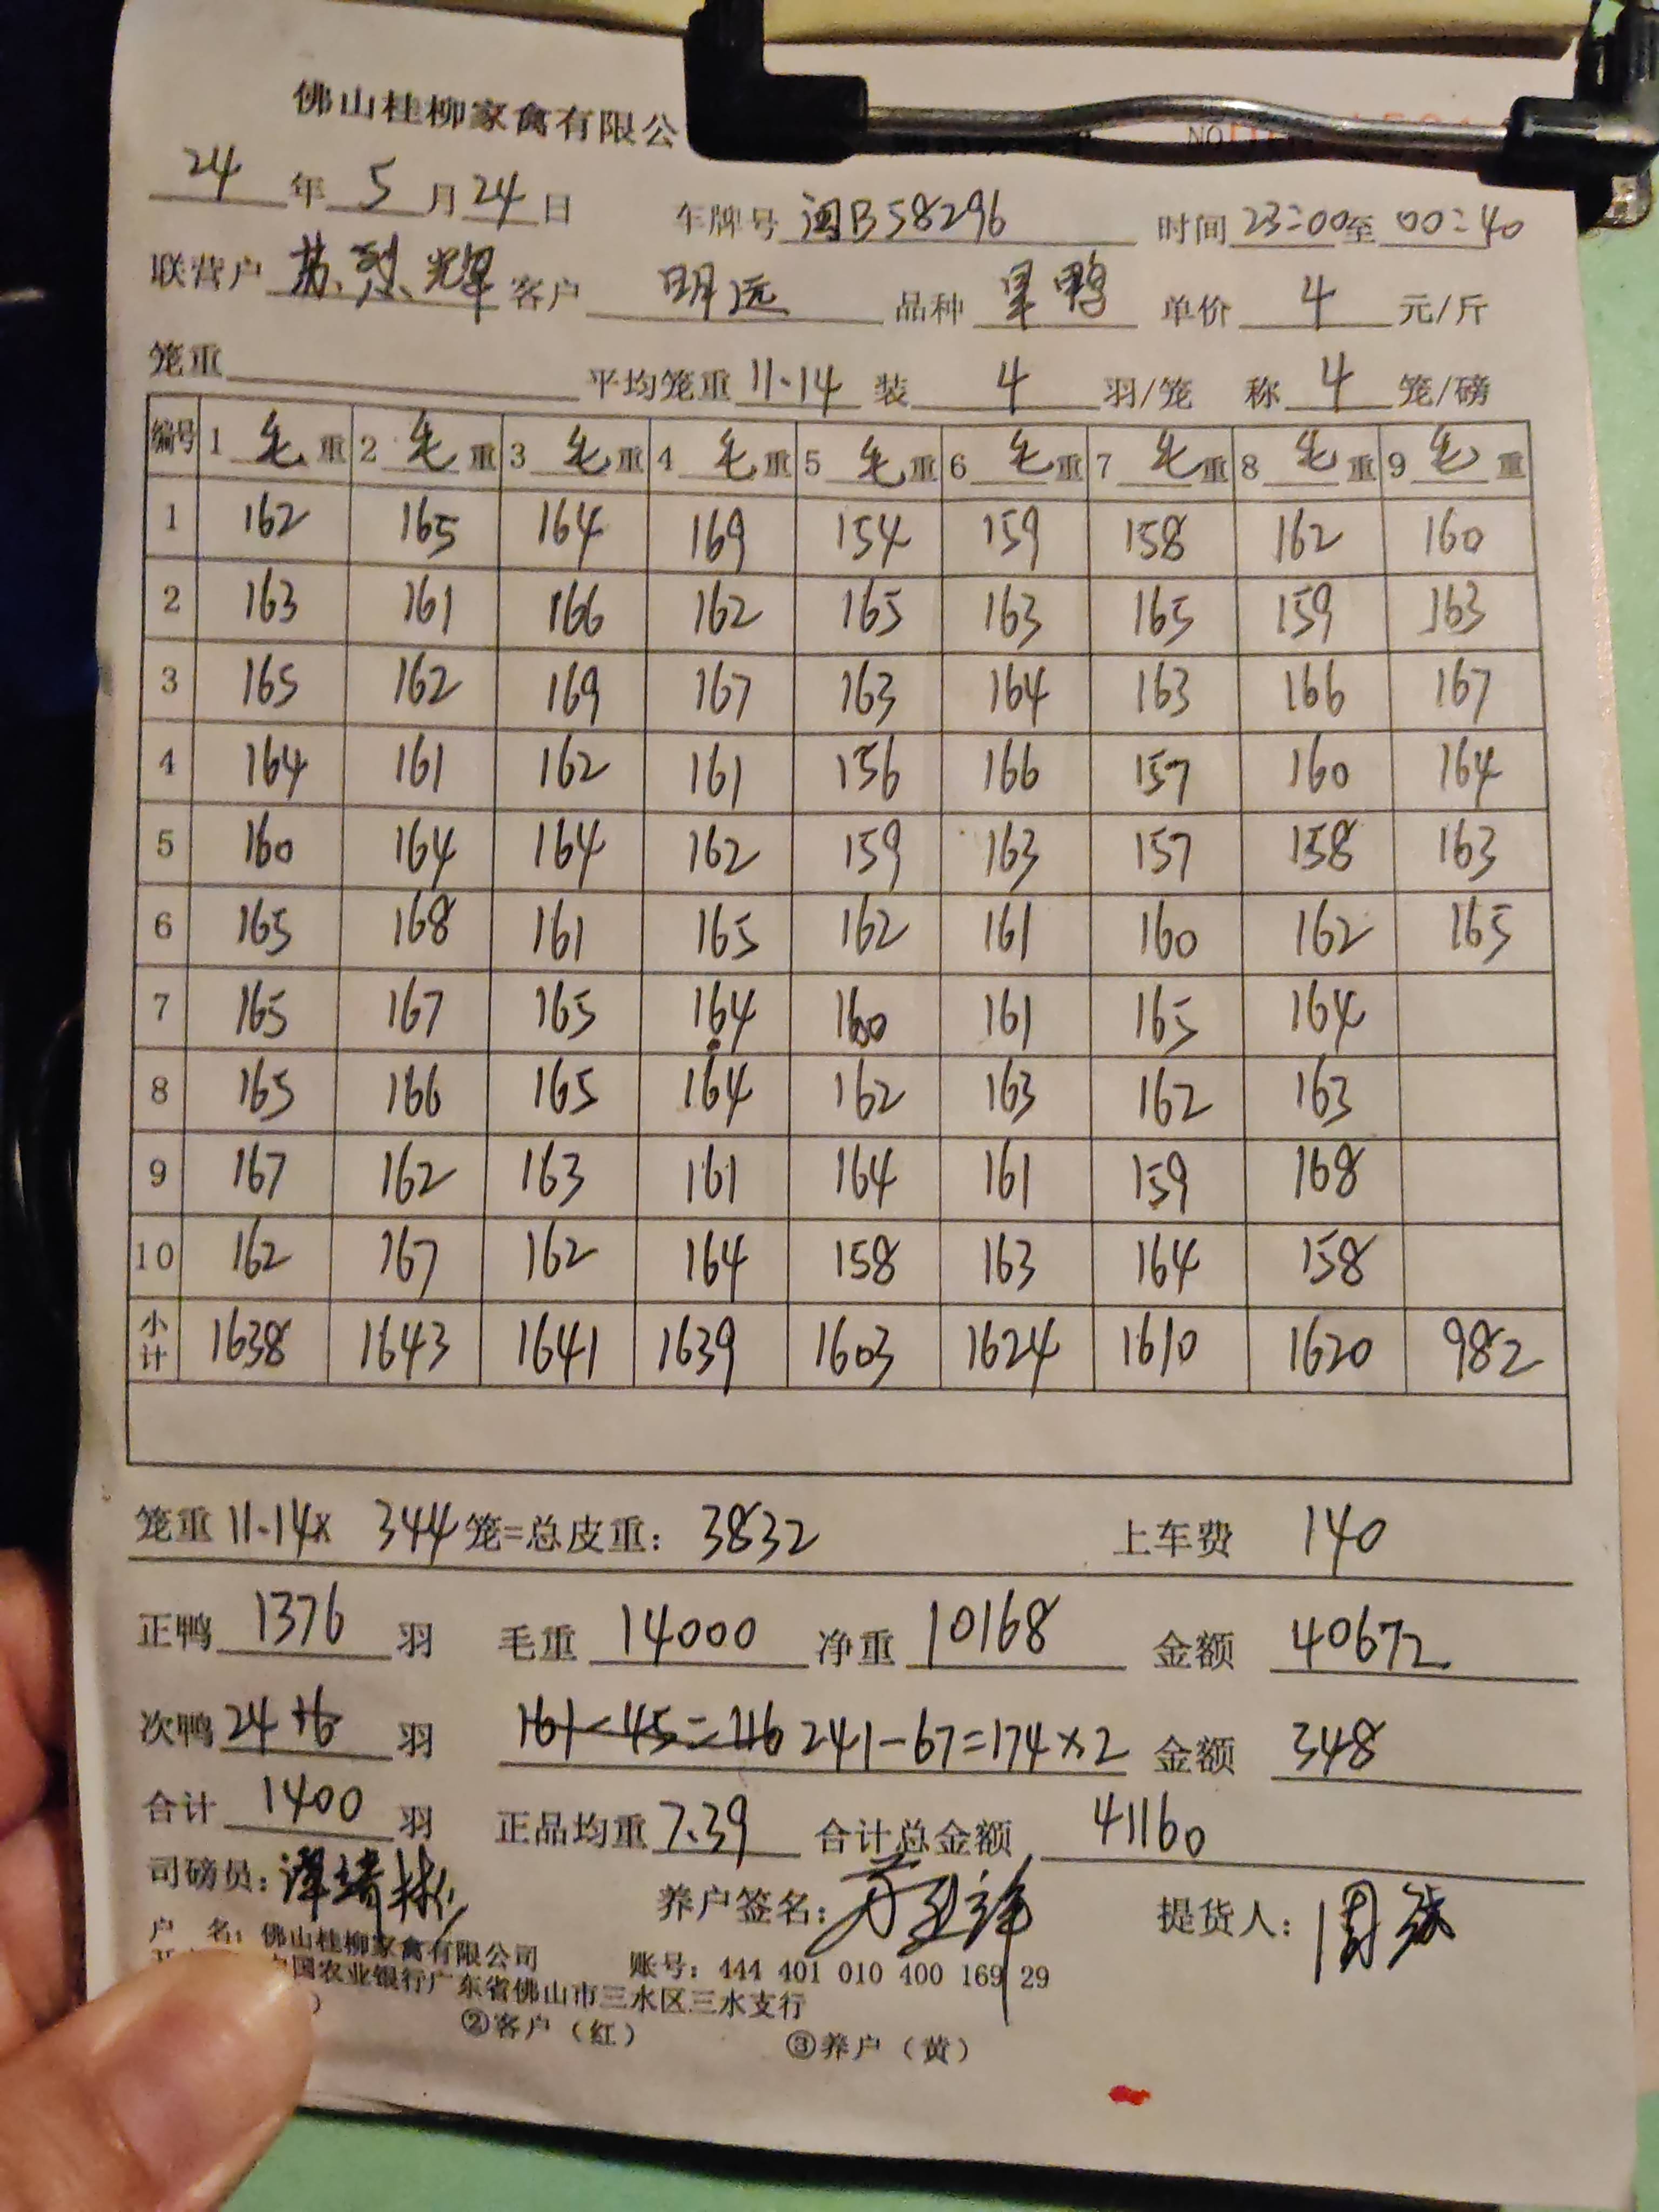 佛山桂柳家禽有限公
NO
24年5月24日 车牌号 闽B58296 时间 23:00至00:40
联营户 苏烈辉 客户 明远 品种 草鸭 单价 4 元/斤
笼重 平均笼重 11.14 装 4 羽/笼 称 4 笼/磅
编号 1 毛重 2 毛重 3 毛重 4 毛重 5 毛重 6 毛重 7 毛重 8 毛重 9 毛重
1 162 165 164 169 154 159 158 162 160
2 163 161 166 162 165 163 165 159 163
3 165 162 169 167 163 164 163 166 167
4 164 161 162 161 156 166 157 160 164
5 160 164 164 162 159 163 157 158 163
6 165 168 161 165 162 161 160 162 165
7 165 167 165 164 160 161 165 164
8 165 166 165 164 162 163 162 163
9 167 162 163 161 164 161 159 168
10 162 167 162 164 158 163 164 158
小计 1638 1643 1641 1639 1603 1624 1610 1620 982
笼重 11.14x 344笼=总皮重: 3832 上车费 140
正鸭 1376 羽 毛重 14000 净重 10168 金额 40672
次鸭 24 +6 羽 161-45=116 241-67=174×2 金额 348
合计 1400 羽 正品均重 7.39 合计总金额 41160
司磅员: 养户签名: 提货人:
户 名: 佛山桂柳家禽有限公司 账号: 444 401 010 400 169 29
国农业银行广东省佛山市三水区三水支行
②客户(红) ③养户(黄)